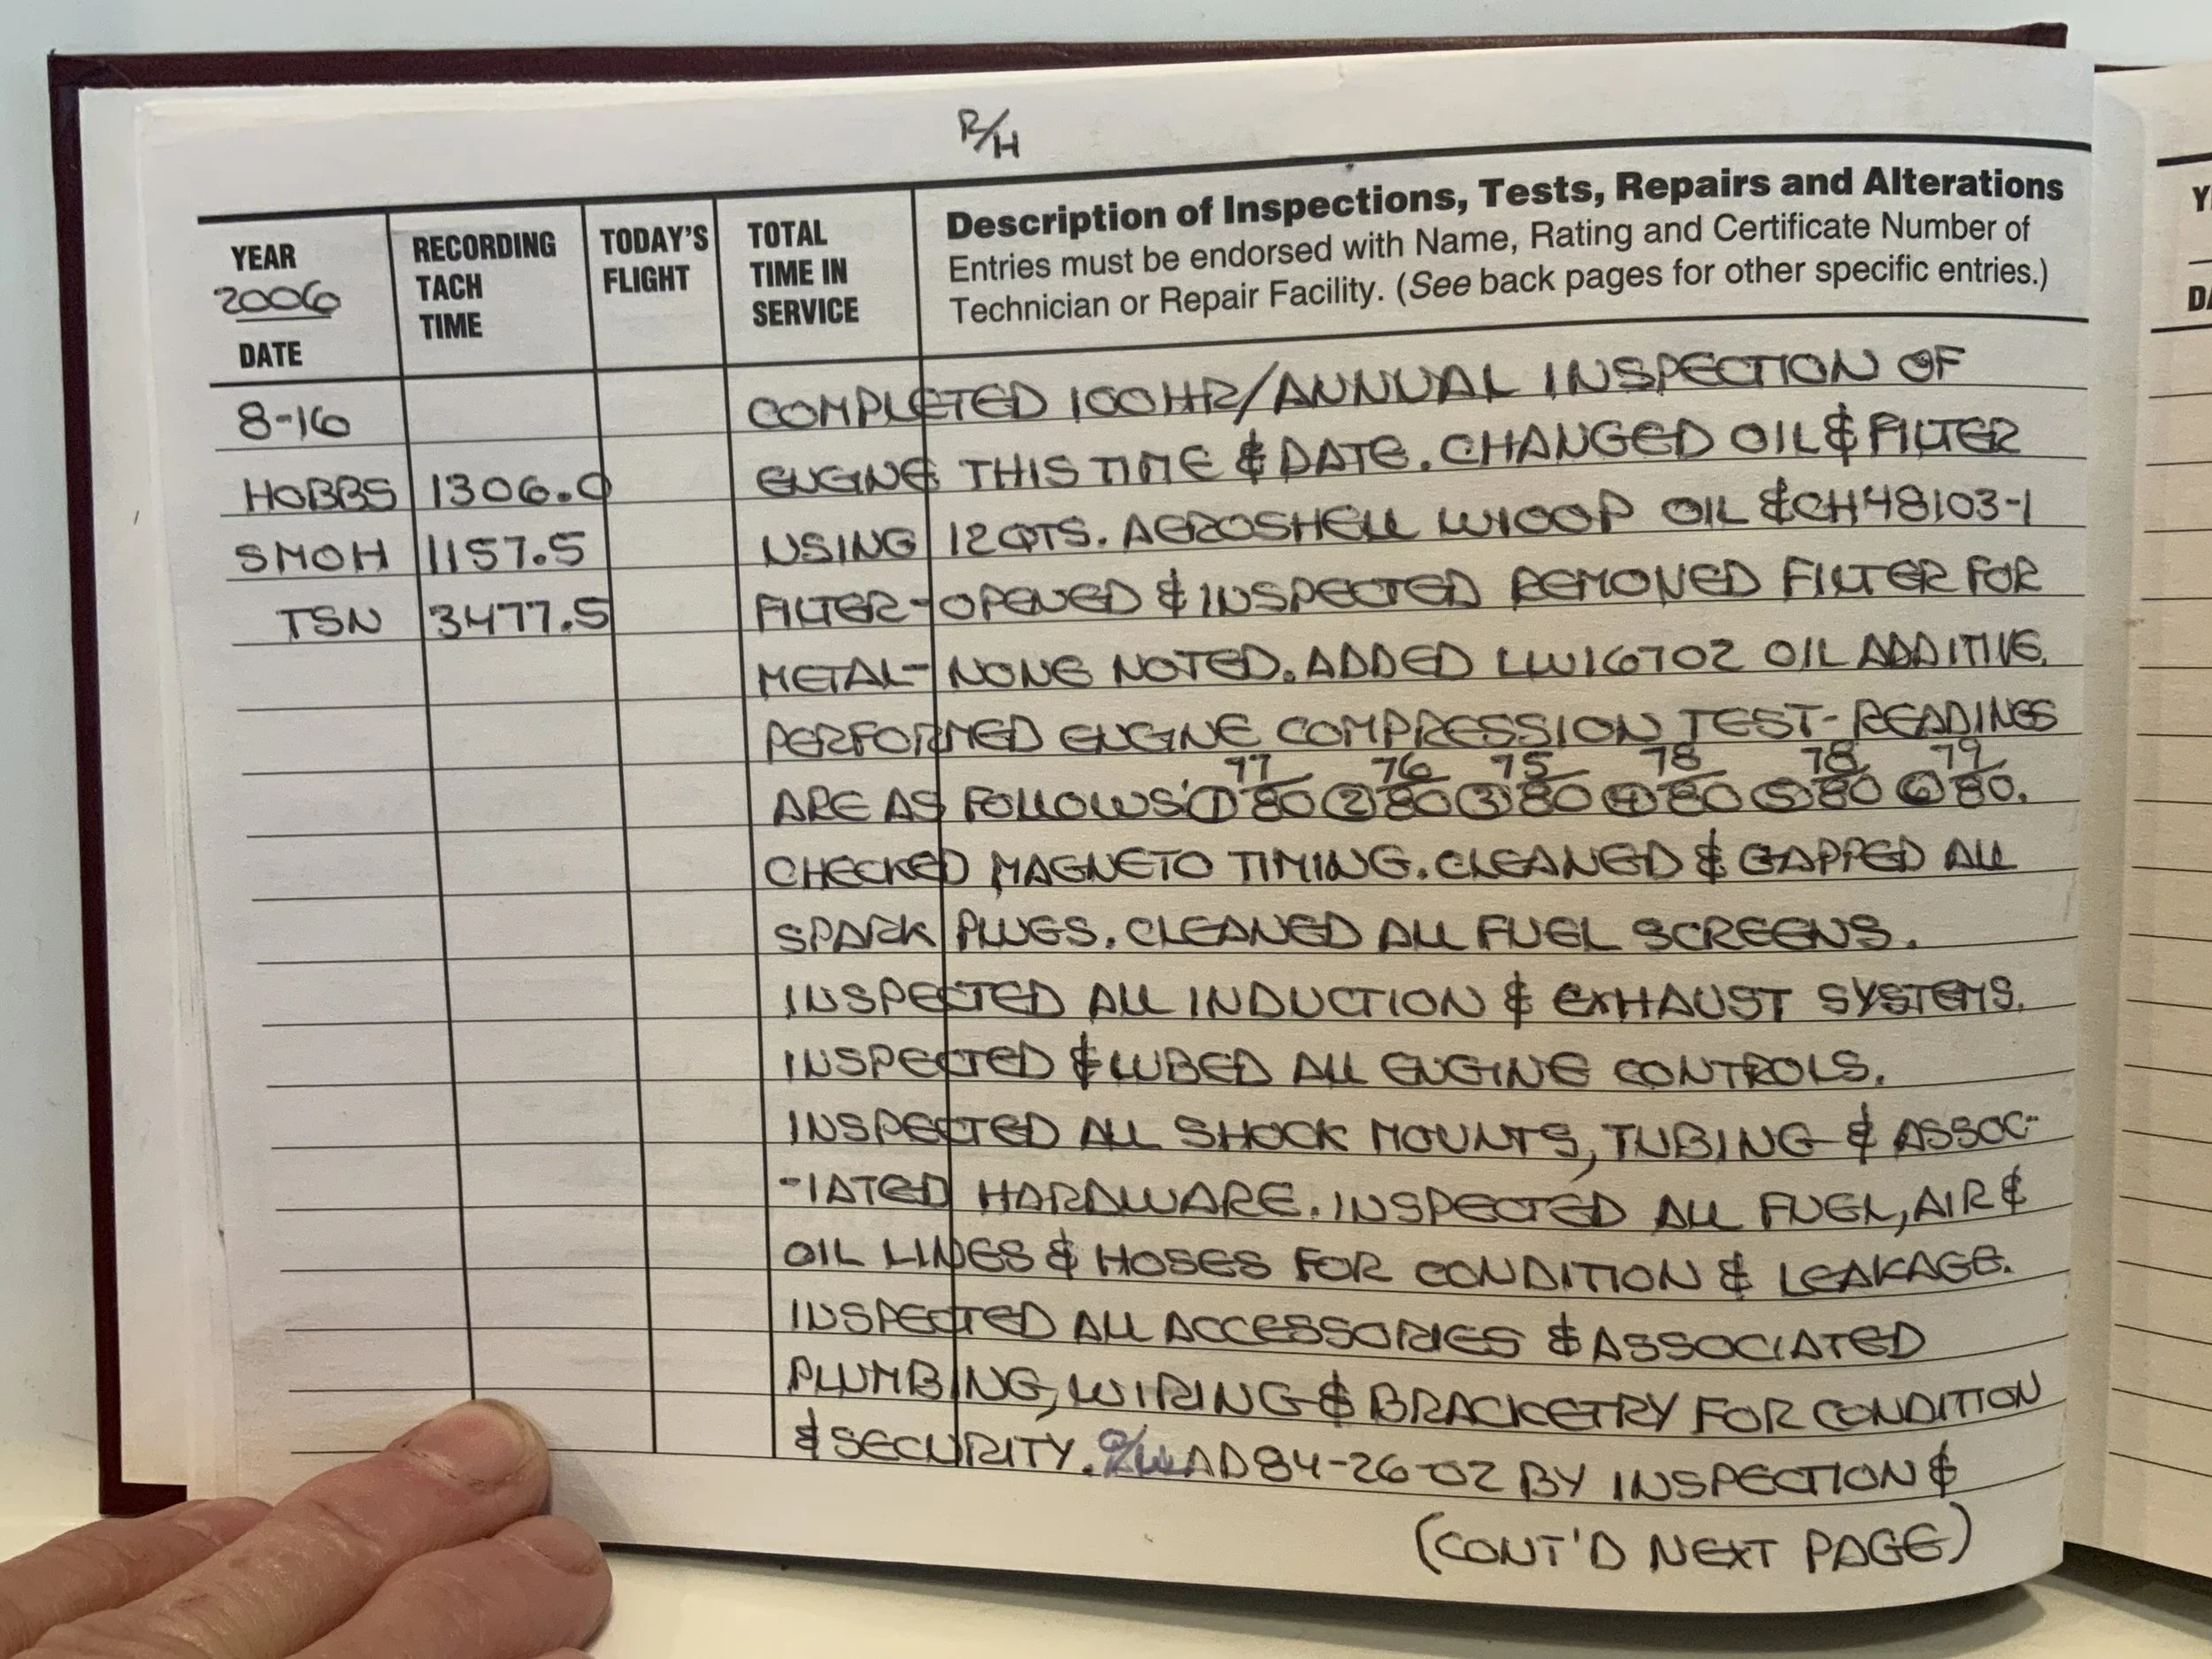 R/H
YEAR
2006
DATE
RECORDING
TACH
TIME
TODAY'S
FLIGHT
TOTAL
TIME IN
SERVICE
Description of Inspections, Tests, Repairs and Alterations
Entries must be endorsed with Name, Rating and Certificate Number of
Technician or Repair Facility. (See back pages for other specific entries.)
8-16 COMPLETED 100HR/ANNUAL INSPECTION OF
HOBBS 1306.0 ENGINE THIS TIME & DATE. CHANGED OIL & FILTER
SMOH 1157.5 USING 12 QTS. AEROSHELL W100P OIL & CH48103-1
TSN 3477.5 FILTER-OPENED & INSPECTED REMOVED FILTER FOR
METAL- NONE NOTED. ADDED LW16702 OIL ADDITIVE.
PERFORMED ENGINE COMPRESSION TEST- READINGS
ARE AS FOLLOWS' ① 77/80 ② 76/80 ③ 75/80 ④ 78/80 ⑤ 78/80 ⑥ 79/80.
CHECKED MAGNETO TIMING. CLEANED & GAPPED ALL
SPARK PLUGS. CLEANED ALL FUEL SCREENS.
INSPECTED ALL INDUCTION & EXHAUST SYSTEMS.
INSPECTED & LUBED ALL ENGINE CONTROLS.
INSPECTED ALL SHOCK MOUNTS, TUBING & ASSOC-
-IATED HARDWARE. INSPECTED ALL FUEL, AIR &
OIL LINES & HOSES FOR CONDITION & LEAKAGE.
INSPECTED ALL ACCESSORIES & ASSOCIATED
PLUMBING, WIRING & BRACKETRY FOR CONDITION
& SECURITY. C/W AD 84-26-02 BY INSPECTION &
(CONT'D NEXT PAGE)